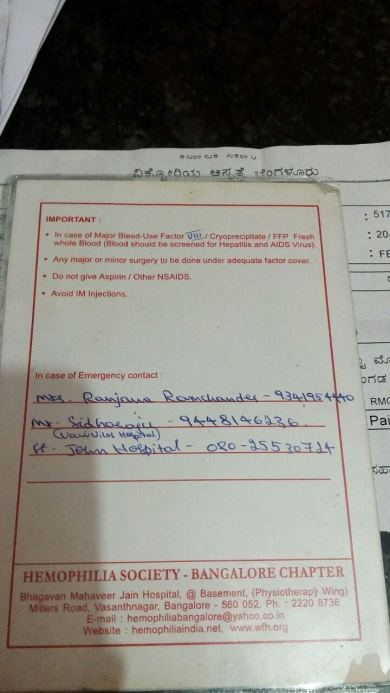 ಕರ್ನಾಟಕ ಸರ್ಕಾರ
ವಿಕ್ಟೋರಿಯ ಆಸ್ಪತ್ರೆ ಬೆಂಗಳೂರು
: 517
: 20-
: FE
RMO
Pai
IMPORTANT :
• In case of Major Bleed-Use Factor VIII / Cryoprecipitate / FFP Fresh
whole Blood (Blood should be screened for Hepatitis and AIDS Virus).
• Any major or minor surgery to be done under adequate factor cover.
• Do not give Aspirin / Other NSAIDS.
• Avoid IM Injections.
In case of Emergency contact :
Mrs. Ranjana Ramchander - 9341954440
Mr. - 9448146236
(Vani Vilas Hospital)
St. John Hospital - 080-25530724
HEMOPHILIA SOCIETY - BANGALORE CHAPTER
Bhagavan Mahaveer Jain Hospital, @ Basement, (Physiotherapy Wing)
Millers Road, Vasanthnagar, Bangalore - 560 052. Ph. : 2220 8736
E-mail : hemophiliabangalore@yahoo.co.in
Website : hemophiliaindia.net, www.wfh.org